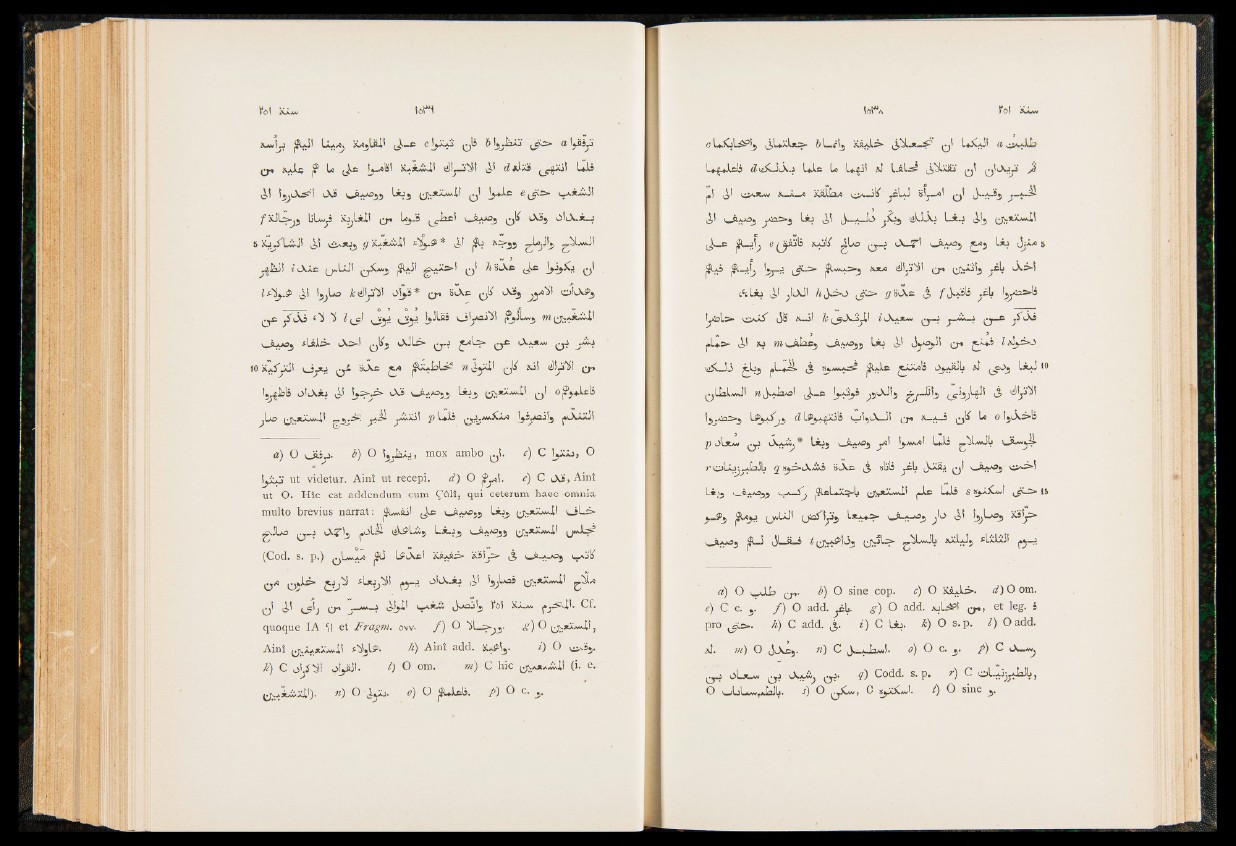 سنة ٢٥١ ١٥٣٨
طلبت a اليكما ان تجعلانى خليفة وانما b جعلتمانى واصحابكما c
ثم تريدان ان تقتلانى فحلفا له انهما ما علما بذلك d فاعلمهما
الخبر وقيل ان امرأة لباغر كانت مطلّقة منه سعت الى امّ
المستعين والى بغا بذلك وبكّر دليل الى بغا وحضر وصيف الى
5 منزل بغا ومع وصيف احمد بن صالح كاتبه فاتّفق e رأيهم على
اخذ باغر واثنين من الاتراك معه وحبسهم حتى يروا رأيهم فيهم
فاحضروا باغر فاقبل f فى عدّة g حتى دخل h الدار الى بغا
فذكر عن بشر بن سعيد i المرثدى k انه قال كنت حاضرا
دخوله l فمنع من الوصول الى بغا ووصيف وعطف m به الى حمّام
10 لبغا ودعى له بالقيود فامتنع عليهم فحبسوه فى الحمّام وبلغ ذلك
الاتراك فى الهارونى والكرخ والدور فوثبوا على اصطبل n السلطان
فاخذوا o ما كان فيه من الدوابّ فانتهبوها d وركبوها وحضروا
الجوسق بالسلاح فلمّا امسوا امر وصيف وبغا *رشيد بن سعاد p
اخت وصيف ان يقتل باغر فاتاه فى عدّة فشدخوه q بالطبرزينات r
15 حتى اسكنوه s فلمّا علم المستعين باجتماعهم ركب ووصيف وبغا
حرّاقة وصاروا الى دار وصيف جميعا وتراكض الناس يومهم وهو
يوم الثلثاء وليلته بالسلاح جائين وذاهبين t فقال لهم وصيف
a) O من طلب. b) O sine cop. c) O خليفة. d) O om.
e) C c. و. f) O add. باغر. g) O add. من اصحابه, et leg. ة
pro حتى. h) C add. فى. i) C بغا. k) O s. p. l) O add.
له. m) O وعدل. n) C اسطبل. o) O c. و. p) C رسد
بن رشيد بن سعاد بن. q) Codd. s. p. r) C بالطبرزنيات,
O s) O سكن, C اسكتوه. t) O sine و.
سنة ٢٥١ ١٥٣٩
ترفقوا a حتى تنظروا b فان ثبتوا c على المقاومة رمينا اليهم برأسه
فلمّا انتهى قتله d الى الاتراك المشغبة اقاموا على ما هم عليه من
الشغب حتى e علموا ان المستعين وبغا ووصيف قد انحدروا الى
بغداد وقد كان وصيف اعطى قوما من المغاربة فرسانا ورجّالة f
5 السلاح والرماح ووجّه بهم الى *هؤلاء المشغبة g وبعث الى الشاكرية
ان يكونوا على عدّة h ان احتيج اليهم وسكن الناس عند i الظهر
وهدأت الامور وقد كان عدّة من *قوّاد الاتراك k صاروا الى هؤلاء l
المشغبين m وسألوهم الانصراف فقالوا يوق يوق اى l لا لا، فذكر عن
بشر بن سعيد عن جامع بن خالد وكان احد خلفاء وصيف
10 من الاتراك انه كان المتولّى n لمخاطبتهم مع عدّة ممن يعرف التركيّة
فاعلموهم o ان المستعين وبغا ووصيف قد خرجوا الى بغداد فاظهروا
التندّم وانصرفوا منكسرين فلمّا p انتشر الخبر بخروج المستعين صار
a) O يرفق. b) O ينظروا, mox ambo ان. c) C نبتوا, O
يثبتوا ut videtur. Ainî ut recepi. d) O امرهم. e) C قد, Ainî
ut O. Hic est addendum cum Çûlî, qui ceterum haec omnia
multo brevius narrat: خاف المستعين وبغا ووصيف على انفسهم
فجلس المستعين ووصيف وبغا وشاهك الخادم واحمد بن صالح
(Cod. s. p.) كاتب وصيف فى حرّاقة خفيفة اعدّها لهم ميسان
ملّاح المستعين فصاروا الى بغداد يوم الاربعاء لاربع خلون من
المحرم سنة ٢٥١ واتصل بشغب الموالى بسرّ من رأى الى ان. Cf.
quoque IA ٩١ et Fragm. ٥٧٧. f) O ورجالا. g) O المستعين,
Ainî هؤلاء المستعينيين. h) Ainî add. واهبة. i) O وقت.
k) C القواد الاتراك. l) O om. m) C hic المستعين (i. e.
المشغبين). n) O يتولى. o) O فاعلمهم. p) O c. و.